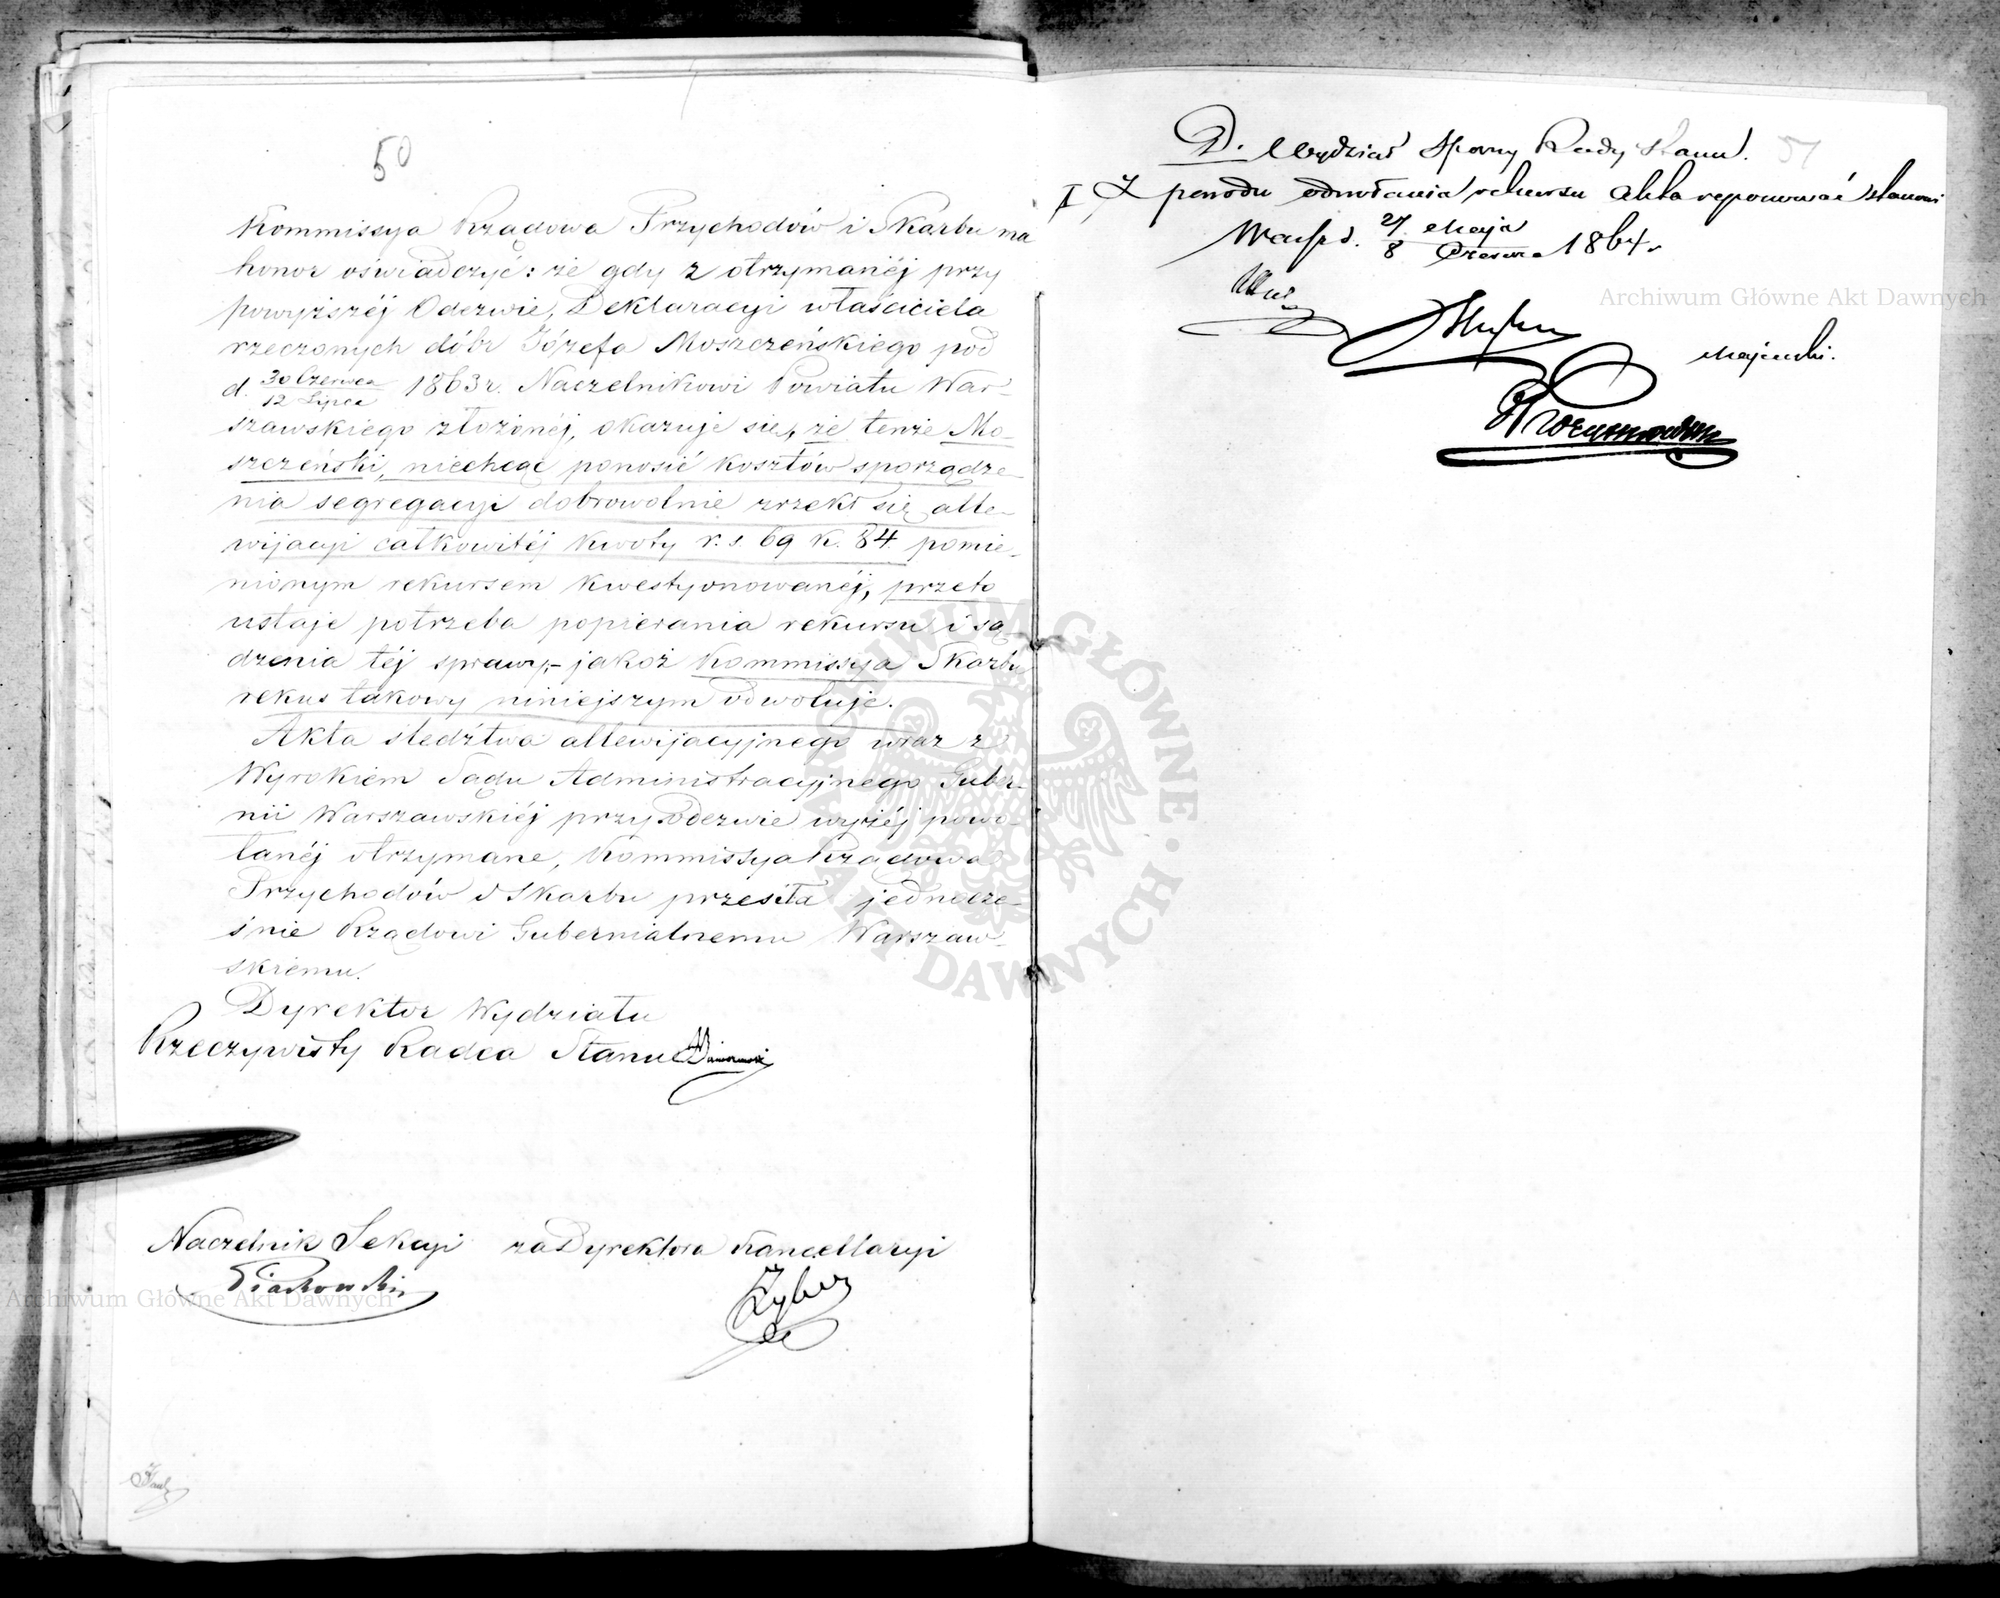 50
Kommissya Rządowa Przychodów i Skarbu ma
honor oświadczyć: że gdy z otrzymanéj przy
powyższéj Odezwie, Deklaracyi właściciela
rzeczonych dóbr Józefa Moszczeńskiego pod
d. 30 Czerwca / 12 Lipca 1863 r. Naczelnikowi Powiatu War-
szawskiego złożonéj, okazuje się, że tenże Mo-
szczeński, niechcąc ponosić kosztów sporządze-
nia segregacyi dobrowolnie zrzekł się alle-
wijacyi całkowitéj kwoty r. s. 69 k. 84. pomie-
nionym rekursem kwestyonowanéj, przeto
ustaje potrzeba popierania rekursu i są-
dzenia téj sprawy,- jakoż Kommissya Skarbu
rekus takowy niniejszym odwołuje.
Akta śledztwa allewijacyjnego wraz z
Wyrokiem Sądu Administracyjnego Guber-
nii Warszawskiéj przy odezwie wyżéj powo-
łanéj otrzymane, Kommissya Rządowa
Przychodów i Skarbu przesiła jednocze-
śnie Rządowi Gubernialnemu Warszaw-
skiemu.
Dyrektor Wydziału
Rzeczywisty Radca Stanu
Naczelnik Sekcyi za Dyrektora Kancellaryi
Piachowski
51
D. Wydział Sporny Rady Stanu.
Z powodu odwołania rekursu Akta reponować stanowi
27 Maja / 8 Czerwca 1864 r.
Majewski.
Archiwum Główne Akt Dawnych
Archiwum Główne Akt Dawnych
ARCHIWUM GŁÓWNE AKT DAWNYCH